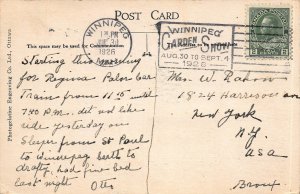 POST CARD
WINNIPEG
1 PM
1926
WINNIPEG
GARDEN SHOW
AUG. 30 TO SEPT. 4
1926
This space may be used for Communication
Photogelatine Engraving Co. Ltd., Ottawa
Starting this morning
for Regina Palor Car
Train from 11 45 until
7.40 P.M. did not like
ride yesterday on
Sleeper from St Paul
to Winnipeg berth to
drafty, had fine bed
last night Otto
Mrs. W.
1824 Harrison Ave
New York
N.Y.
USA
Bronx